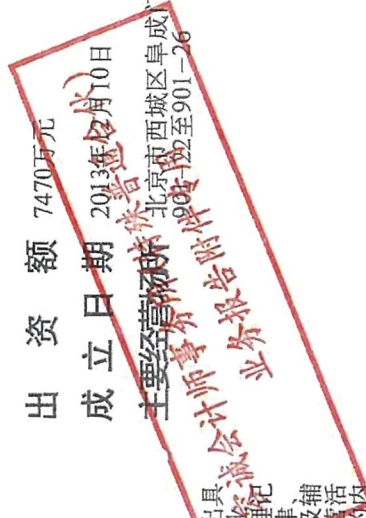 出资额 7470万元
成立日期 2013年12月10日
主要经营场所 北京市西城区阜成门
901-22至901-26
诚会计师事务所(特殊普通合伙)
业务报告附件专用
出具
记
律、
辅
活
内